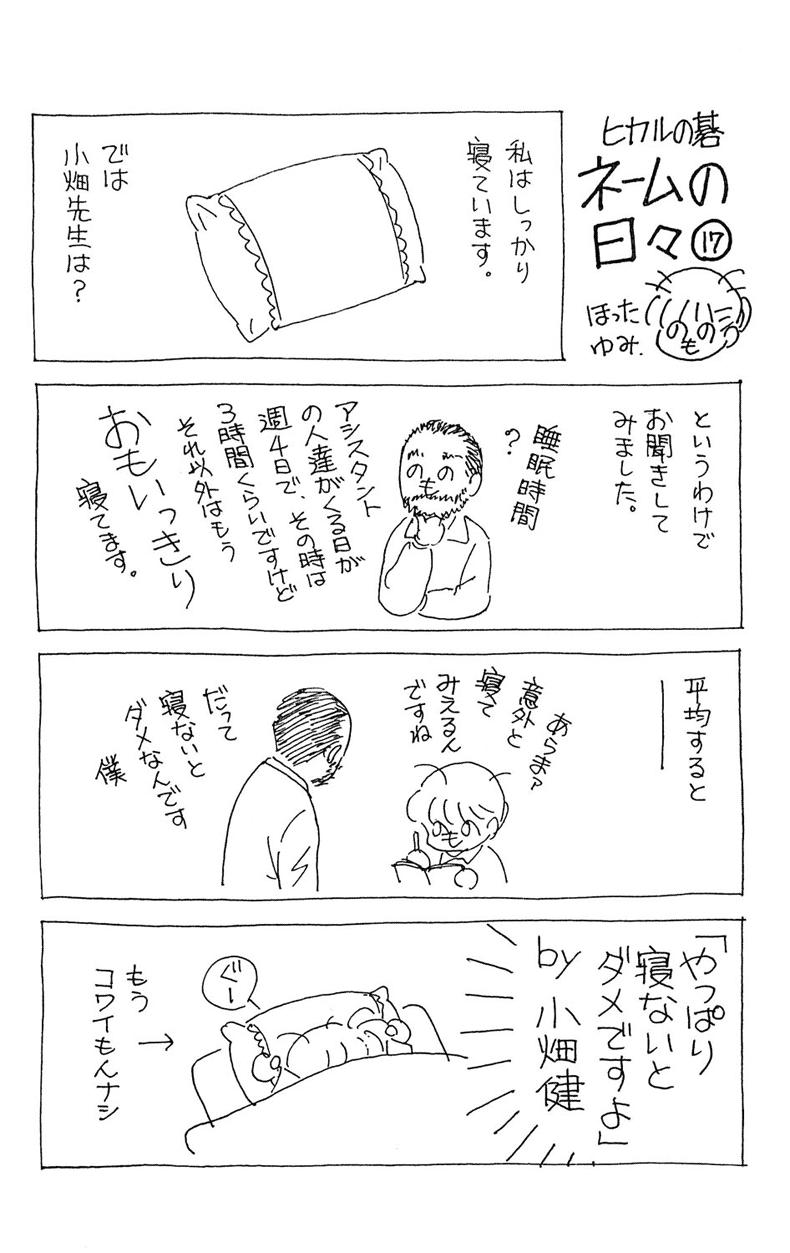 ヒカルの碁
ネームの
日々⑰
ほった
ゆみ.
私はしっかり
寝ています。
では
小畑先生は？
というわけで
お聞きして
みました。
睡眠時間
？
アシスタント
の人達がくる日が
週４日で、その時は
３時間くらいですけど
それ以外はもう
おもいっきり
寝てます。
平均すると
あらまァ
意外と
寝て
みえるん
ですね
だって
寝ないと
ダメなんです
僕
「やっぱり
寝ないと
ダメですよ」
by 小畑健
ぐー
もう
コワイもんナシ
→